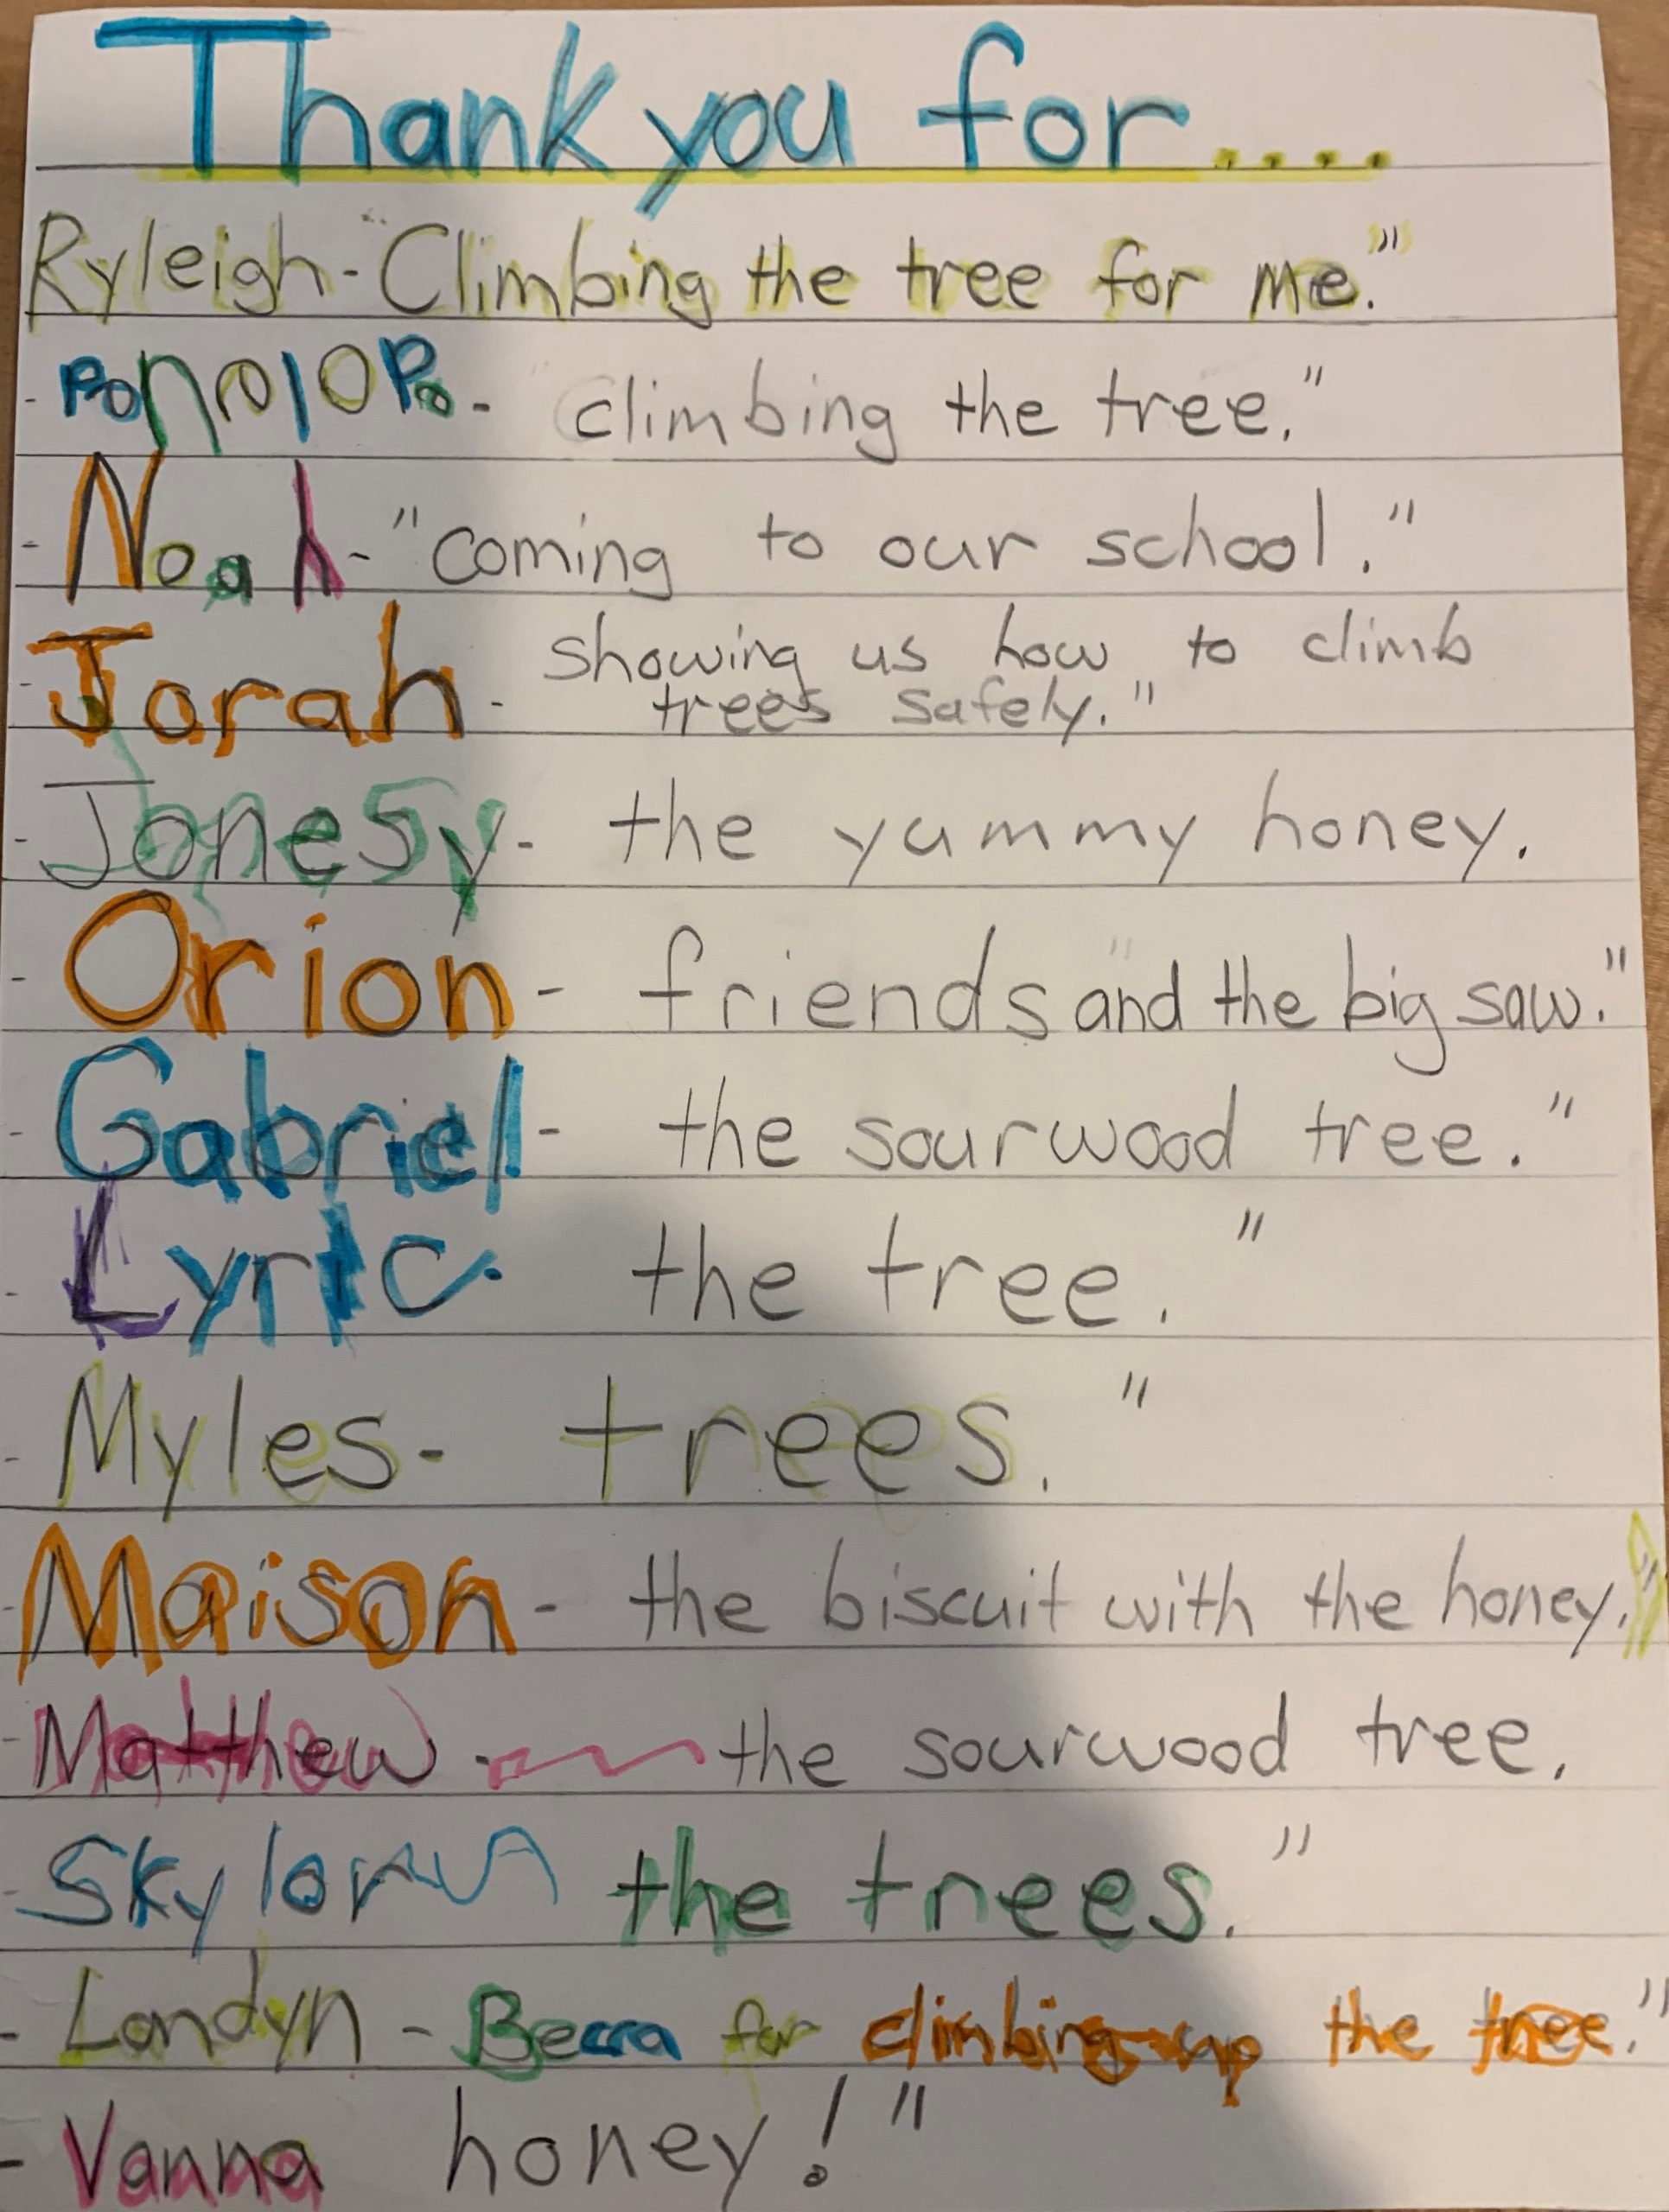 Thank you for....
Ryleigh-"Climbing the tree for me."
- PonolOPo- "climbing the tree."
- Noah-"coming to our school."
- Jorah- showing us how to climb
trees safely."
- Jonesy- the yummy honey.
- Orion- friends and the big saw."
- Gabriel- the sourwood tree."
- Lyric- the tree."
- Myles- trees."
- Maison- the biscuit with the honey."
- Matthew - the sourwood tree.
- Skylor the trees."
- Landyn - Becca for climbing up the tree."
- Vanna honey!"